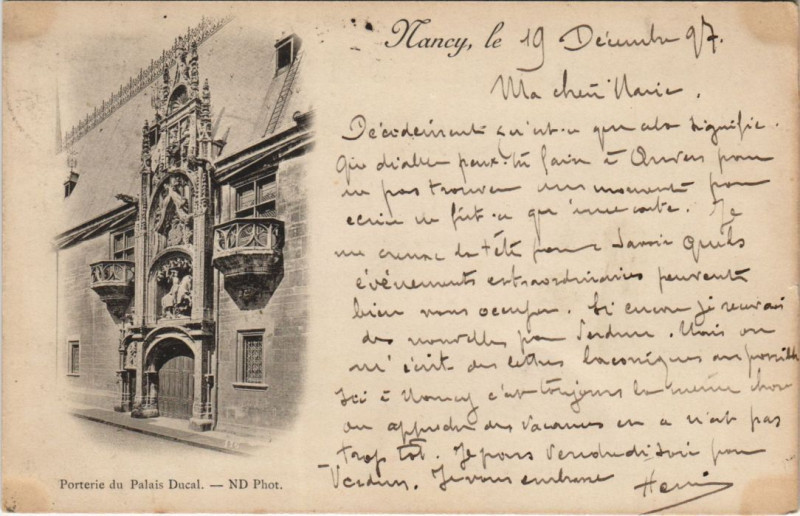 Nancy, le 19 Décembre 97.
Ma chère Marie.
Décidément qu'est-ce que cela signifie.
Que diable peux-tu faire à Anvers pour
ne pas trouver un moment pour
écrire ne fût-ce qu'une carte. Je
me creuse la tête pour savoir quels
événements extraordinaires peuvent
bien vous occuper. Si encore je recevais
des nouvelles par Verdun. Mais on
m'écrit des lettres laconiques au possible
Ici à Nancy c'est toujours la même chose
on approche des vacances ce n'est pas
trop tôt. Je pars Vendredi soir pour
Verdun. Je vous embrasse Henri
Porterie du Palais Ducal. — ND Phot.